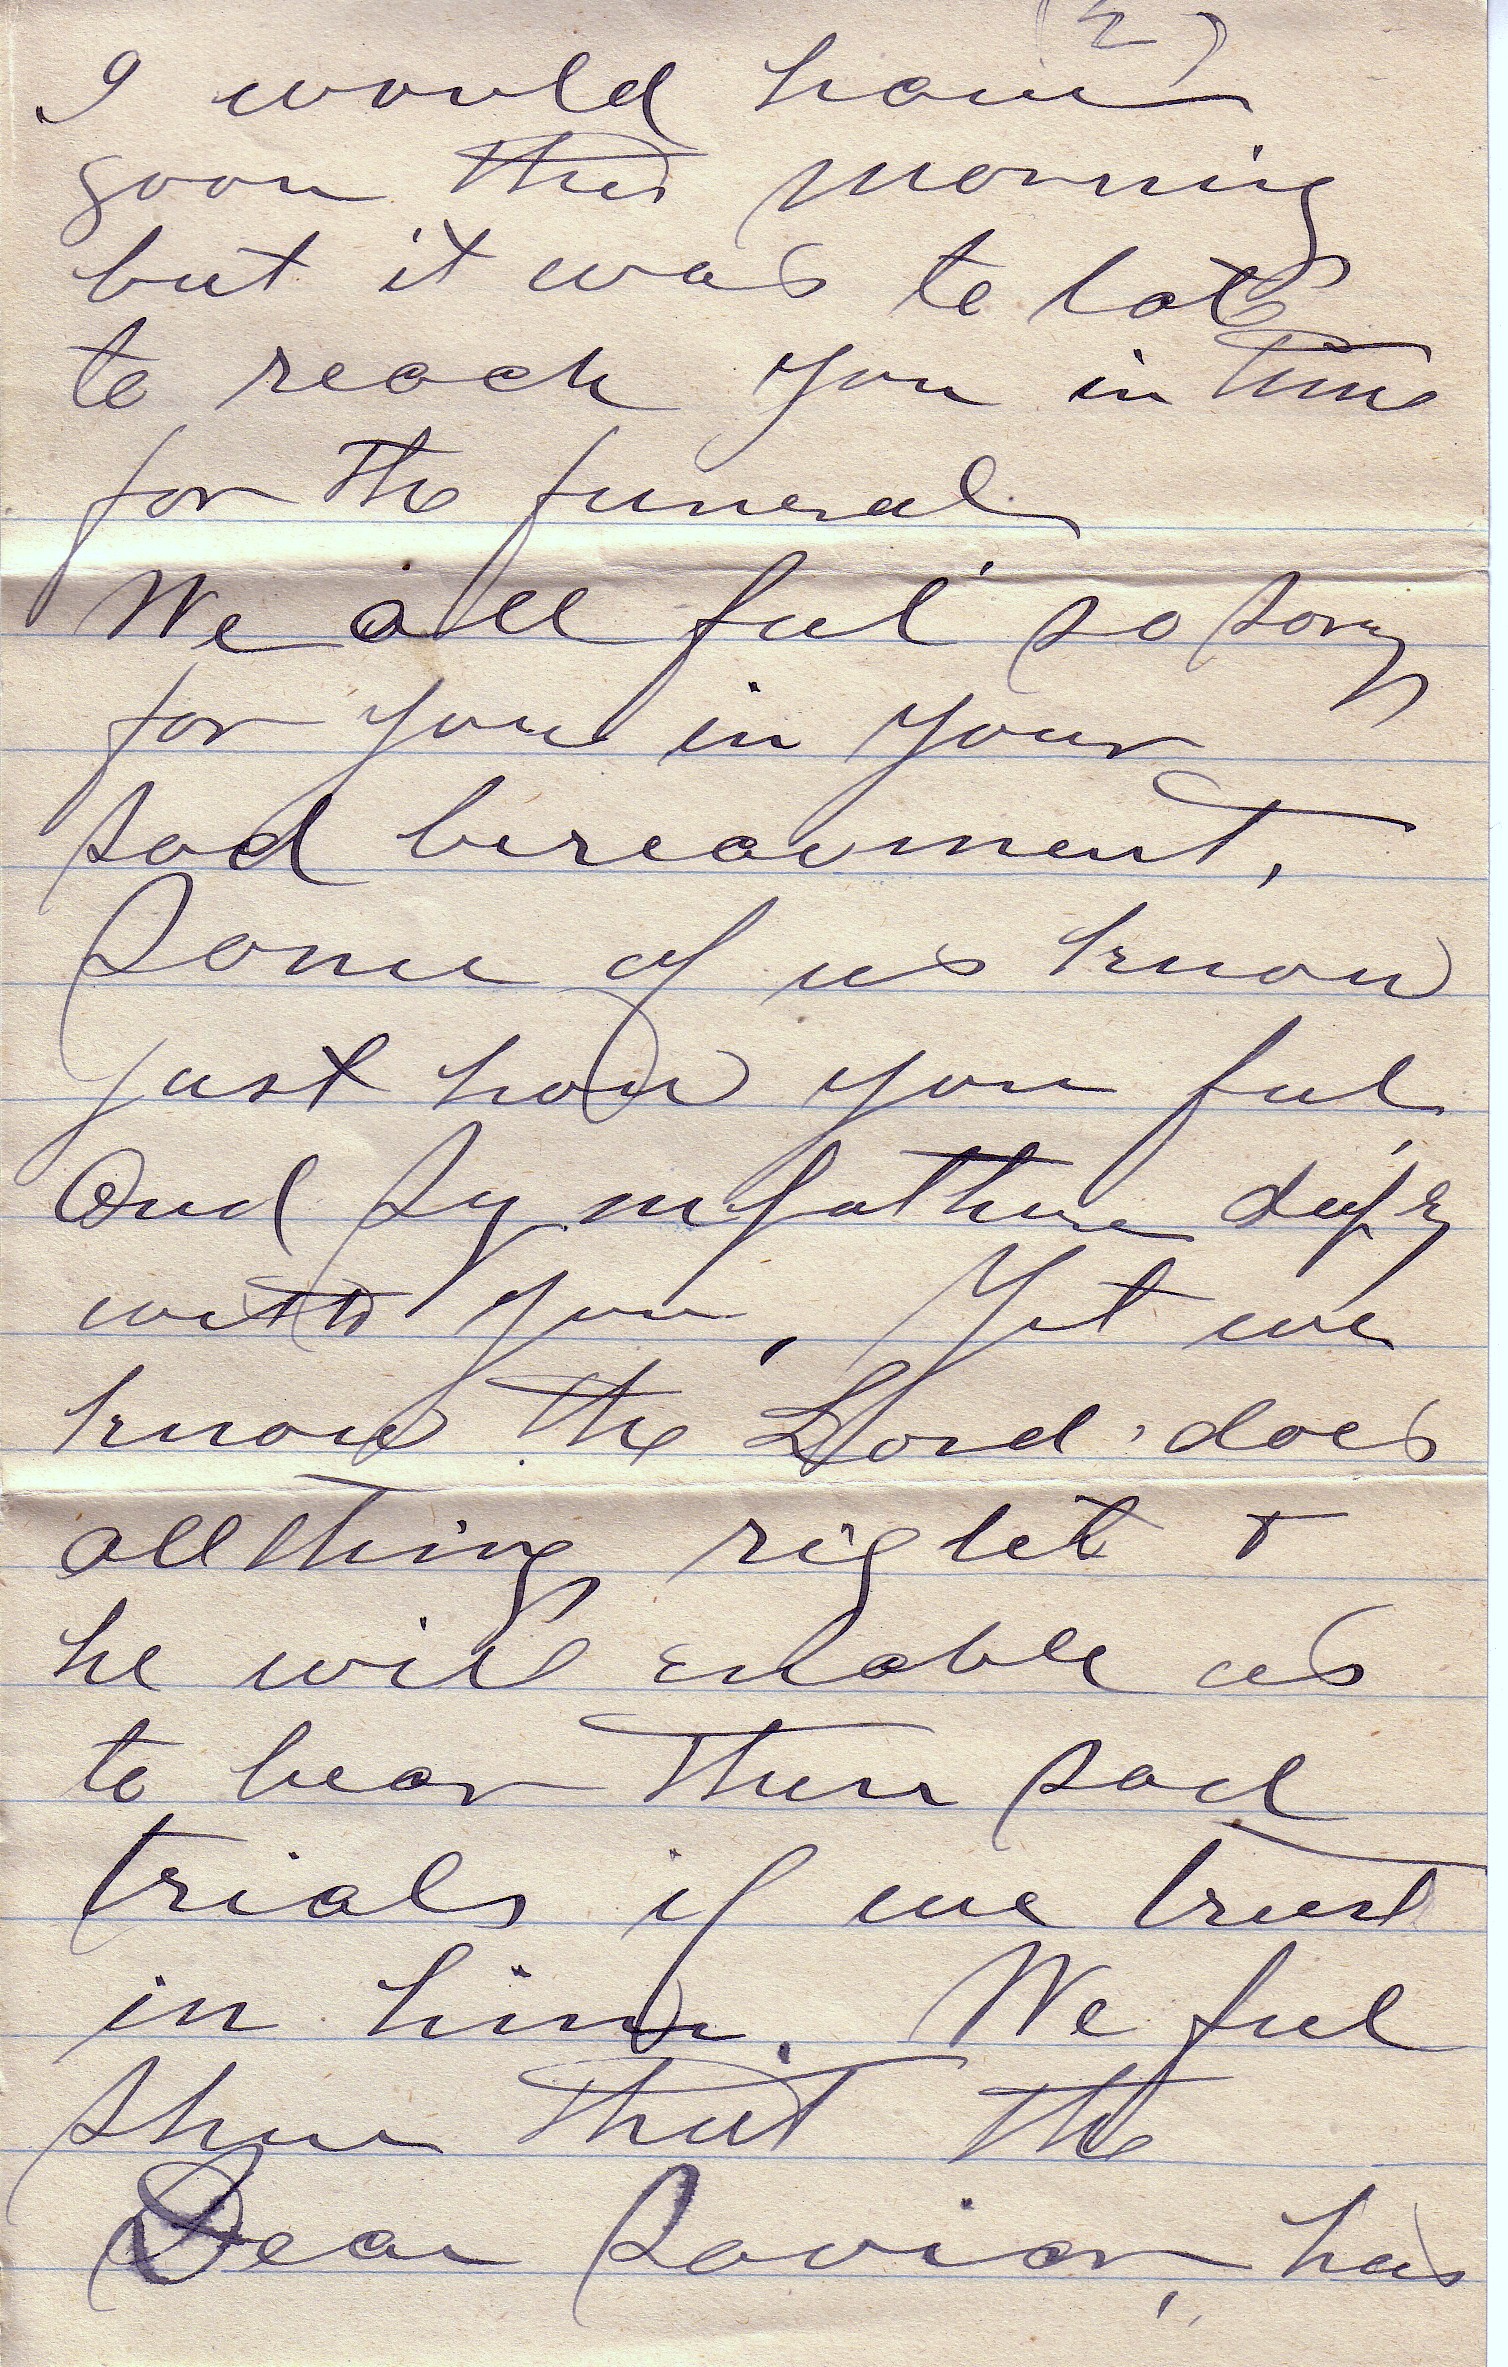 (2)
I would have
goon this morning
but it was to late
to reach you in time
for the funeral
We all feel so sory
for you in your
sad bereavment,
Some of us know
just how you feel,
And symfathise deply
with you, Yet we
know the Lord does
all things right +
he will enable us
to bear these sad
trials if we trust
in him. We feel
shure that the
Dear Savior, has